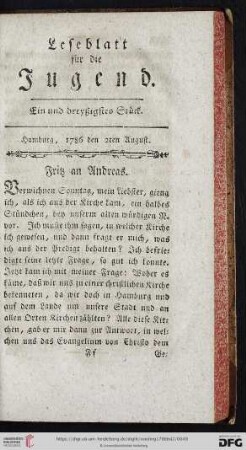 Leseblatt
für die
Jugend.
Ein und dreyßigstes Stück.
Hamburg, 1786 den 2ten August.
Fritz an Andreas.
Verwichnen Sonntag, mein Liebster, gieng
ich, als ich aus der Kirche kam, ein halbes
Stündchen, bey unserm alten würdigen N.
vor. Ich mußte ihm sagen, in welcher Kirche
ich gewesen, und dann fragte er mich, was
ich aus der Predigt behalten? Ich befrie-
digte seine letzte Frage, so gut ich konnte.
Jetzt kam ich mit meiner Frage: Woher es
käme, daß wir uns zu einer christlichen Kirche
bekenneten, da wir doch in Hamburg und
auf dem Lande um unsere Stadt und an
allen Orten Kirchen zählten? Alle diese Kir-
chen, gab er mir dann zur Antwort, in wel-
chen uns das Evangelium von Christo dem
Ff
Ge-
DFG